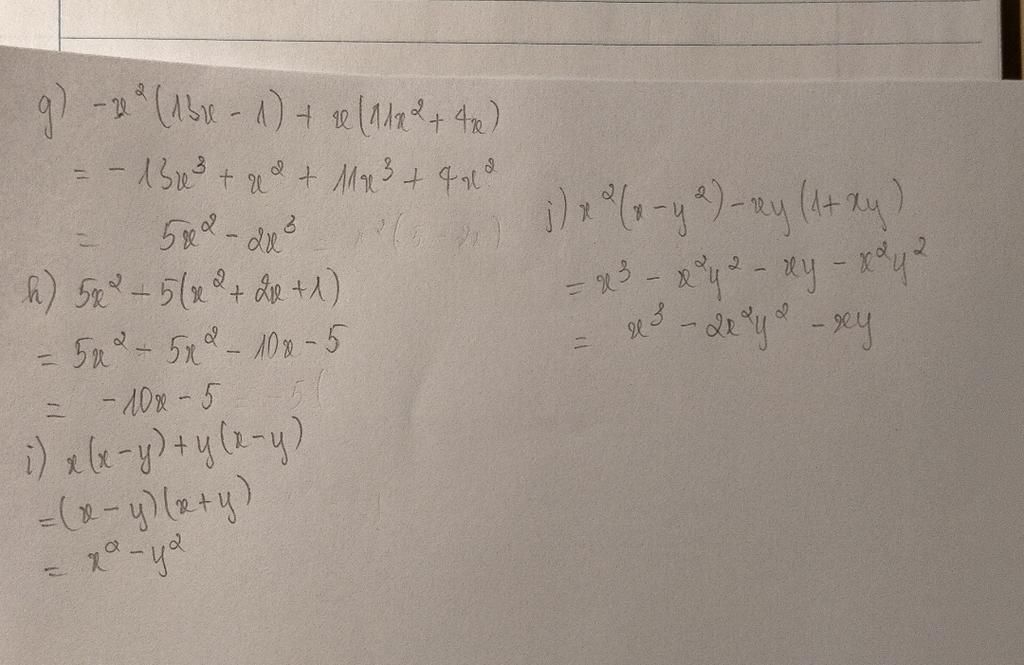 g) -x²(13x - 1) + x(11x² + 4x)
= -13x³ + x² + 11x³ + 4x²
= 5x² - 2x³
h) 5x² - 5(x² + 2x + 1)
= 5x² - 5x² - 10x - 5
= -10x - 5
i) x(x-y) + y(x-y)
= (x-y)(x+y)
= x² - y²
j) x²(x-y²) - xy(1+xy)
= x³ - x²y² - xy - x²y²
= x³ - 2x²y² - xy